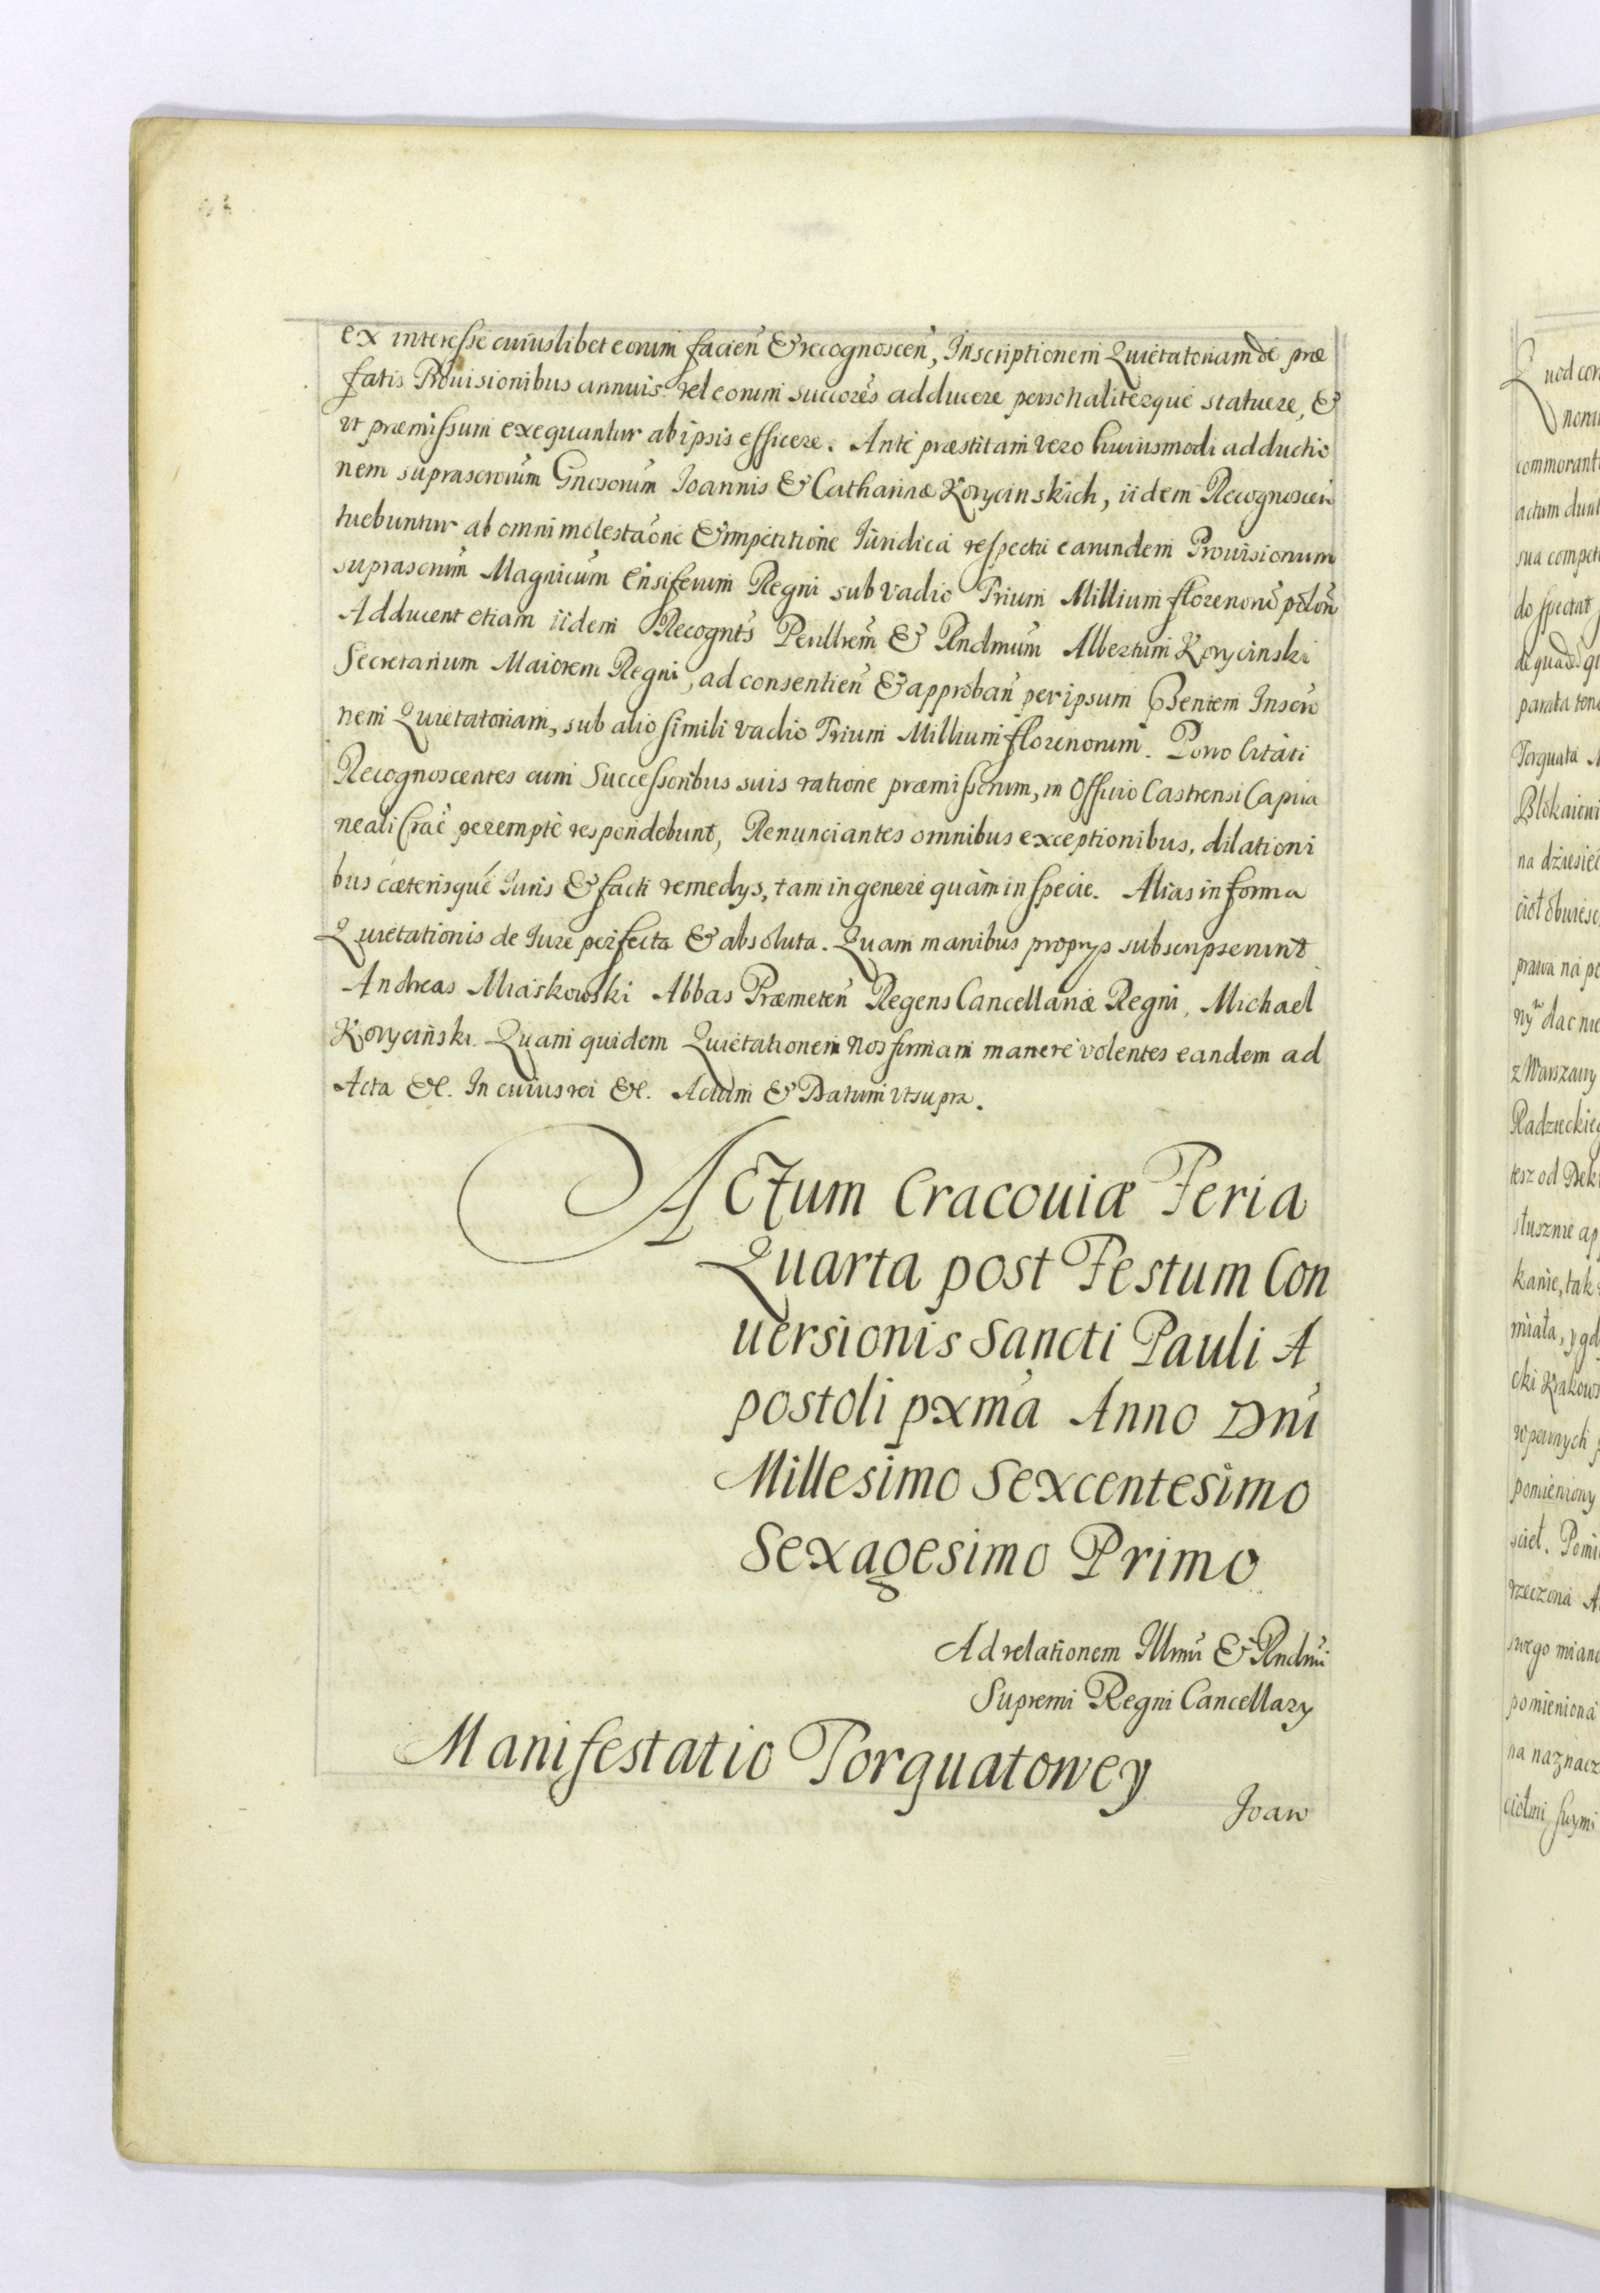 ex interesse cuiuslibet eorum facień & recognosceń, Inscriptionem Quietatoriam de præ
fatis Prouisionibus annuis vel eorum succores adducere personaliterque statuere, &
vt præmissum exequantur ab ipsis efficere. Ante præstitam vero huiusmodi adductio
nem suprascriorum Gnosorum Joannis & Catharinæ Korycinskich, iidem Recognosceń
tuebuntur ab omni molestaõne & impetitione Juridica respectu earundem Prouisionum
suprascrum Magnicum Ensiferum Regni sub vadio Trium Millium florenorũ polon̄
Adducent etiam iidem Recognt̄s Perillrem & Rndmum Albertum Korycinski
Secretarium Maiorem Regni, ad consentień & approbań per ipsum Pn̄tem Inscrip
nem Quietatoriam, sub alio simili vadio Trium Millium florenorum. Porro Citati
Recognoscentes cum Successoribus suis ratione præmissorum, in Officio Castrensi Capita
neali Crac̄ perempte respondebunt, Renunciantes omnibus exceptionibus, dilationi
bus cæterisque Juris & facti remedys, tam in genere quàm in specie. Alias in forma
Quietationis de Jure perfecta & absoluta. Quam manibus proprys subscripserunt
Andreas Miaskowski Abbas Præmeteń Regens Cancellariæ Regni, Michael
Korycinski. Quam quidem Quietationem nos firmam manere volentes eandem ad
Acta &c. In cuius rei &c. Actum & Datum vt supra.
Actum Cracouiæ Feria
Quarta post Festum Con
uersionis Sancti Pauli A
postoli pxm̄a Anno Dnī
Millesimo Sexcentesimo
Sexagesimo Primo
Ad relationem Illmī & Rndmī
Supremi Regni Cancellary
Manifestatio Torquatowey
Joan
Quod con
commorant
actum dunt
sua compet
do spectat
parata
Torquata
na dziesięć
prawa na
ny dac nie
z Warszawy
Radzieckieg
tesz od Dek
słusznie ap
kanie, tak
miała, y gd
cki Krakows
wpewnych
pomieniony
rzeczona
swego
pomieniona
na naznacz